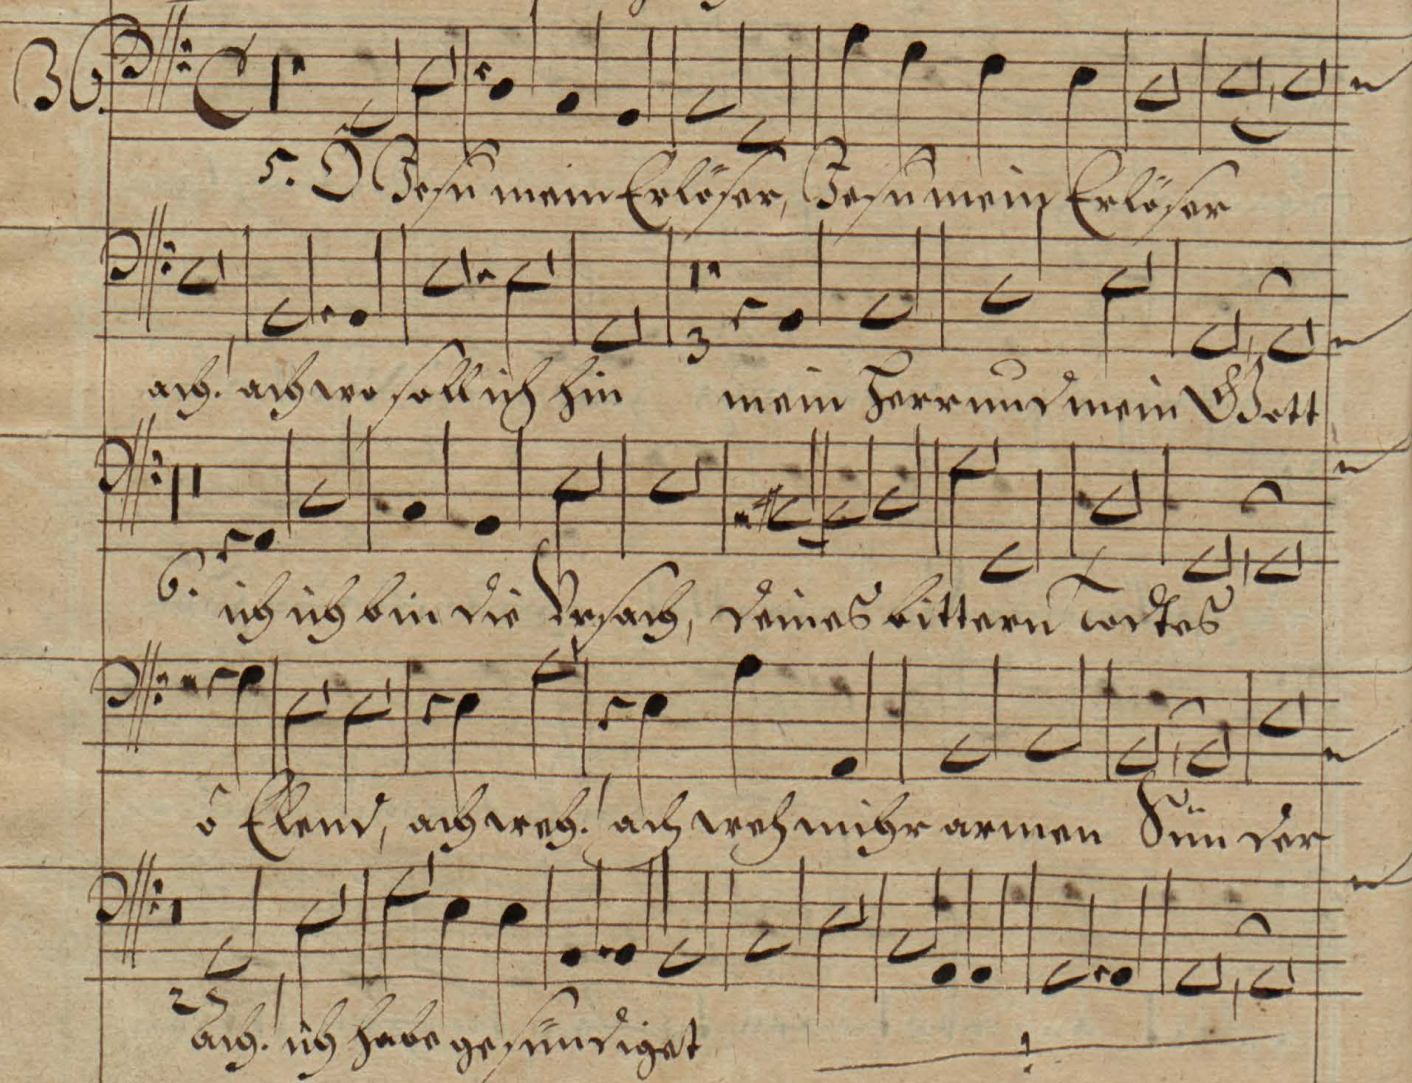 36.
5. O Jesu mein Erlöser, Jesu mein Erlöser
3
ach! ach wo soll ich hin mein Herr und mein Gott
6. ich ich bin die Ursach, deines bittern Todtes
ô Elend, ach weh! ach weh mihr armen Sünder
27
ach! ich habe gesündiget